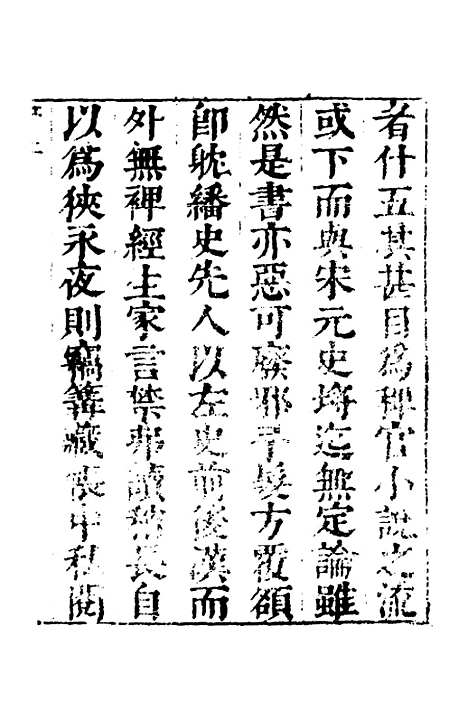 者什五其甚目為稗官小說之流
或下而與宋元史埒迄無定論雖
然是書亦惡可廢耶予髮方覆額
即耽繙史先人以左史前後漢而
外無裨經生家言禁弗讀稍長自
以為狹永夜則竊篝藏帳中私閱